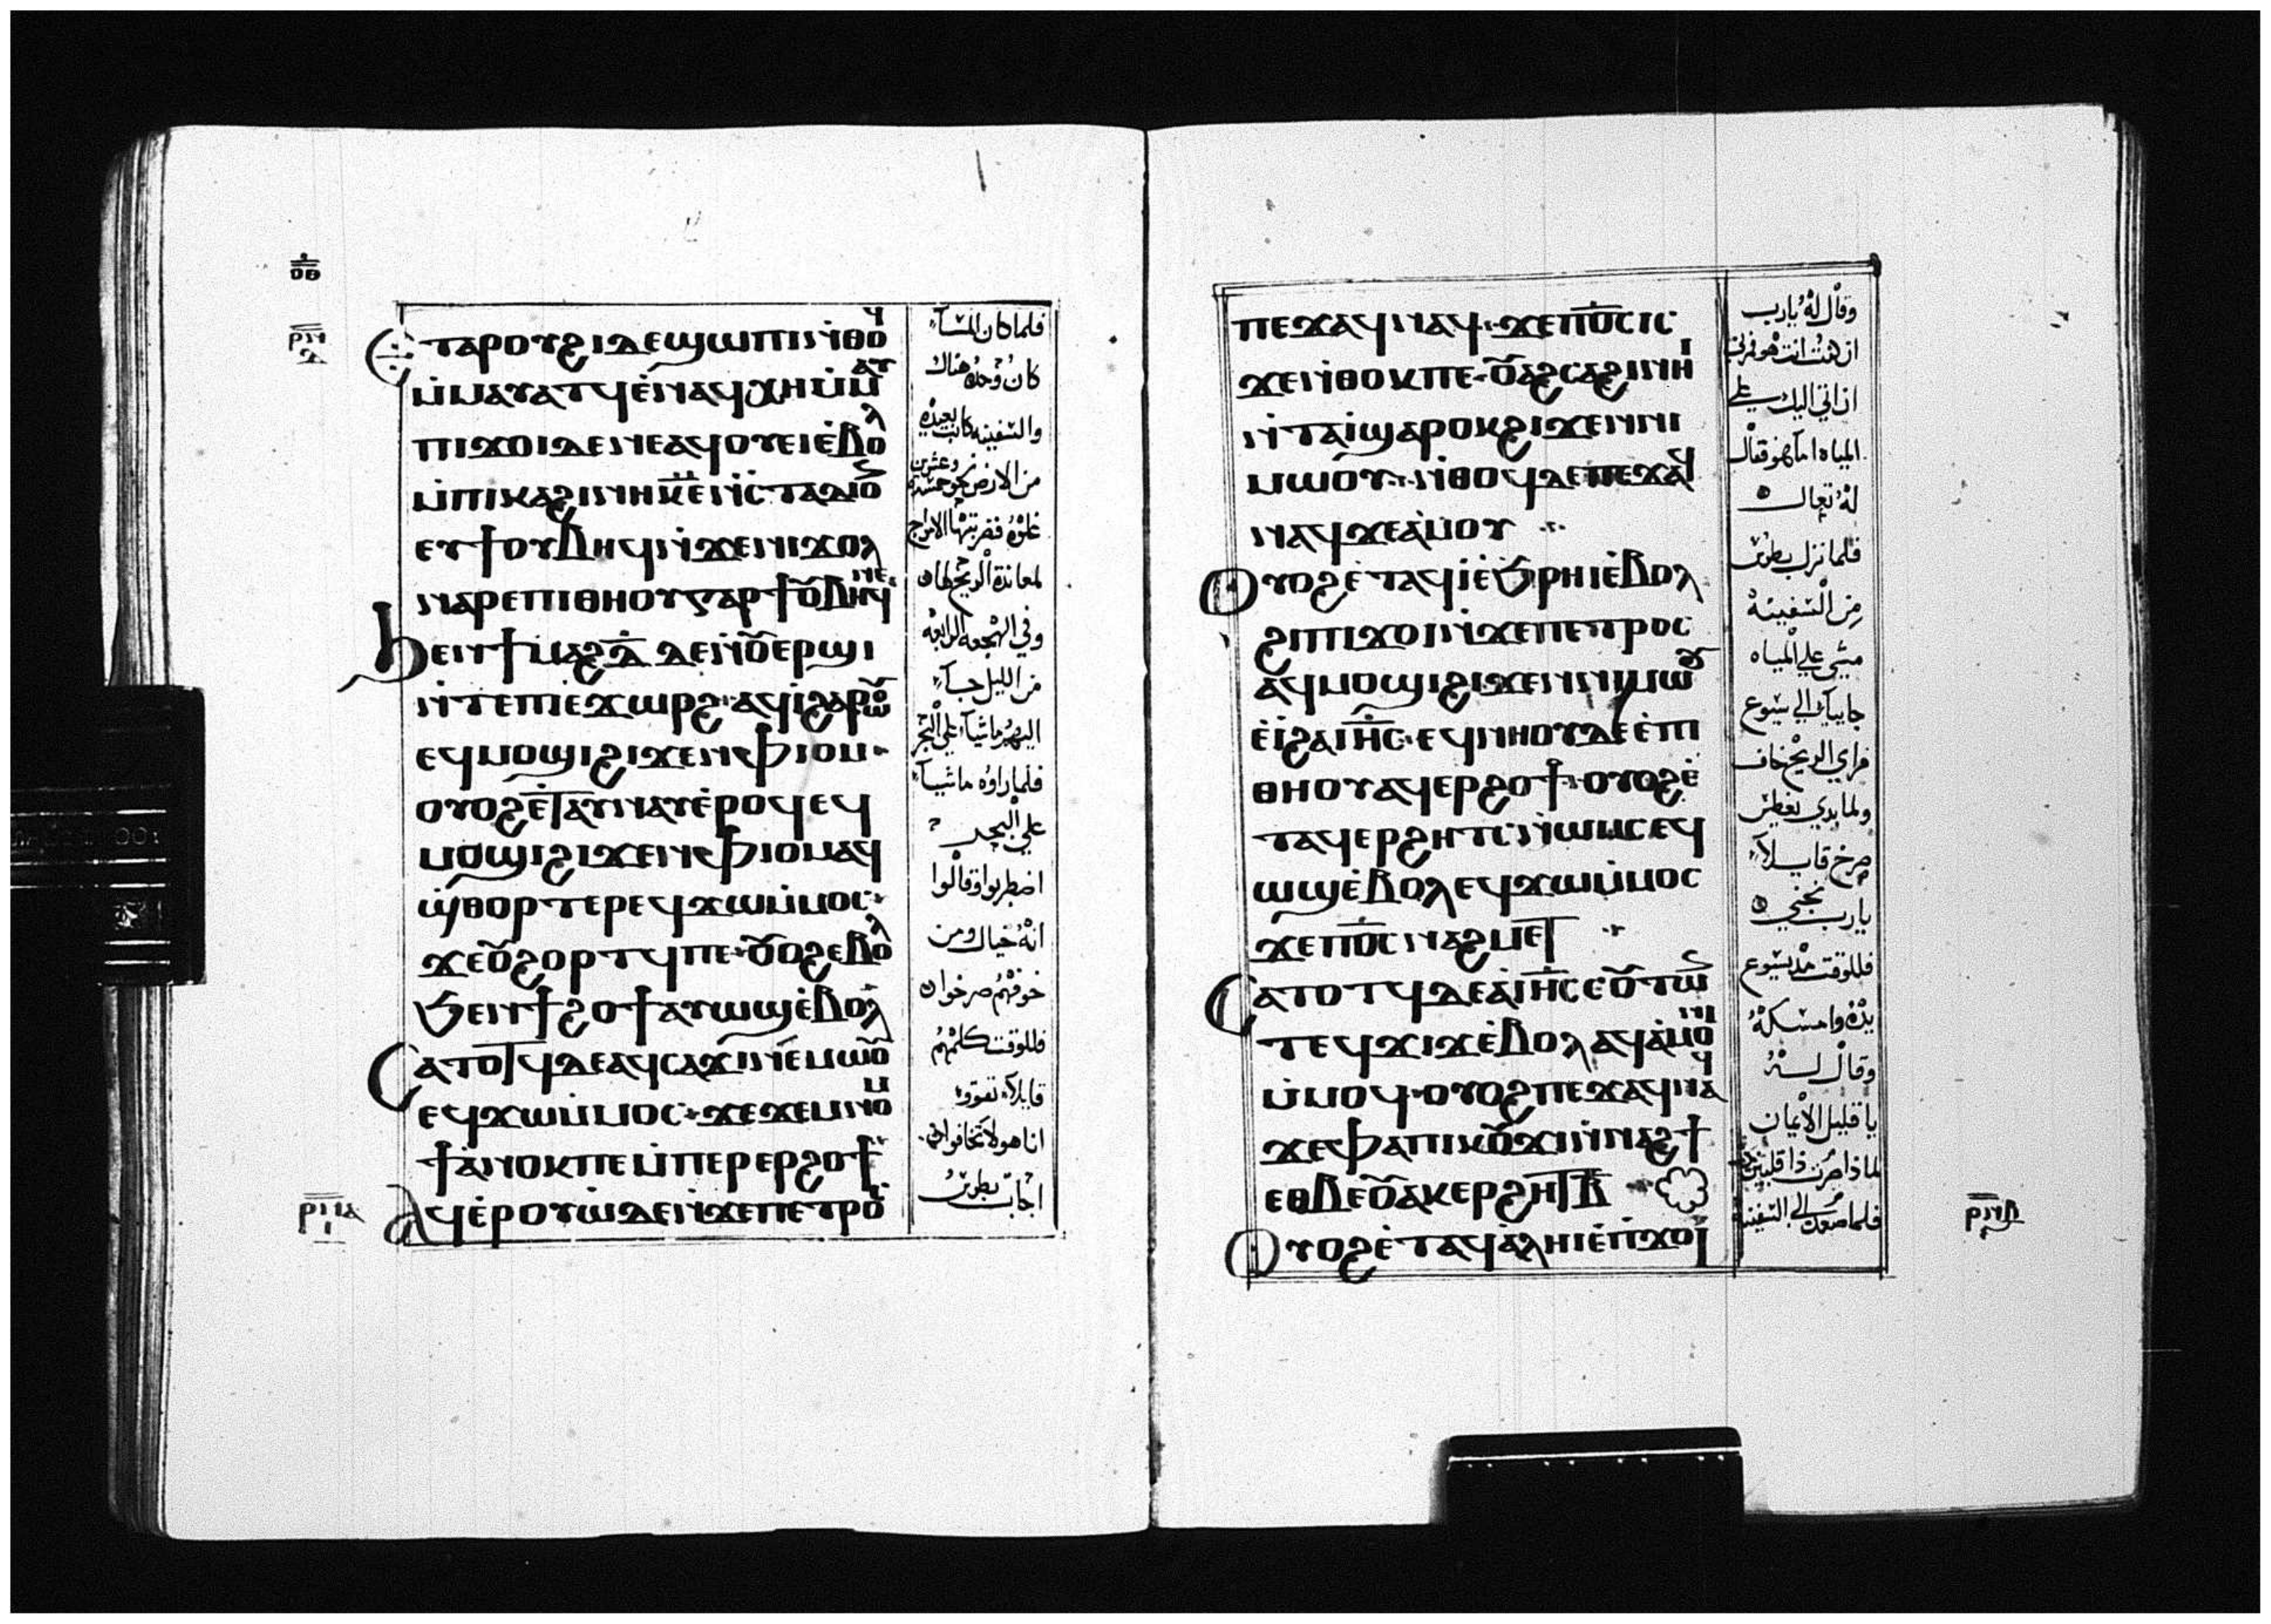 ⲟⲑ
ⲣⲛ
ⲇ
Ⲉⲧⲁⲣⲟⲩϩⲓ ⲇⲉ ϣⲱⲡⲓ ⲛ̇ⲑⲟϥ
ⲙ̇ⲙⲁⲩⲁⲧϥ ⲉ̇ⲛⲁϥⲭⲏ ⲙ̇ⲙⲁⲩ
ⲡⲓϫⲟⲓ ⲇⲉ ⲛⲉⲁϥⲟⲩⲉⲓ ⲉ̇ⲃⲟⲗ
ⲙ̇ⲡⲓⲕⲁϩⲓ ⲛⲏ ⲕ̅ⲉ̅ ⲛ̇ⲥⲧⲁⲇⲓⲟⲥ
ⲉⲩϯⲟⲩⲃⲏϥ ⲛ̇ϫⲉⲛⲓϫⲟⲗ
ⲛⲁⲣⲉⲡⲓⲑⲏⲟⲩ ⲅⲁⲣ ϯⲟⲩⲃⲏϥⲛⲉ
ϧⲉⲛϯⲙⲁϩⲇ̅ ⲇⲉ ⲛ̇ⲟⲩⲉⲣϣⲓ
ⲛ̇ⲧⲉⲡⲓⲉϫⲱⲣϩ ⲁϥⲓ̇ϩⲁⲣⲱⲟⲩ
ⲉϥⲙⲟϣⲓ ϩⲓϫⲉⲛ ⲫⲓⲟⲙ
ⲟⲩⲟϩ ⲉ̇ⲧⲁⲩⲛⲁⲩ ⲉ̇ⲣⲟϥ ⲉϥ
ⲙⲟϣⲓ ϩⲓϫⲉⲛ ⲫⲓⲟⲙ ⲁϥ
ϣ̇ⲑⲟⲣⲧⲉⲣ ⲉϥϫⲱ ⲙ̇ⲙⲟⲥ
ϫⲉⲟⲩϩⲟⲣⲧϥ ⲡⲉ ⲟⲩⲟϩ ⲉⲃⲟⲗ
ϧⲉⲛϯϩⲟϯ ⲁⲩⲱϣ ⲉ̇ⲃⲟⲗ
Ⲥⲁⲧⲟⲧϥ ⲇⲉ ⲁϥⲥⲁϫⲓ ⲛⲉⲙⲱⲟⲩ
ⲉϥϫⲱ ⲙ̇ⲙⲟⲥ ϫⲉ ϫⲉⲙⲛⲟⲙ
ϯ ⲁ̇ⲛⲟⲕ ⲡⲉ ⲙ̇ⲡⲉⲣⲉⲣϩⲟϯ
ⲣⲛⲁ
ⲓ
Ⲁϥⲉ̇ⲣⲟⲩⲱ̇ ⲇⲉ ⲛ̇ϫⲉ ⲡⲉⲧⲣⲟⲥ
فلما كان المسآء
كان وحده هناك
والسفينه كانت بعيده
من الارض نحو خمسه وعشرين
غلوه فضربتها الامواج
لمعاندة الريح لها
وفي الهجعه الرابعه
من الليل جآء
اليهم ماشيآ علي البحر
فلما راوه ماشيآ
علي البحر
اضطربوا وقالوا
انه خيال ومن
خوفهم صرخوا
فللوقت كلمهم
قايلآ تقووا
انا هو لا تخافوا
اجاب بطرس
ⲡⲉϫⲁϥ ⲛⲁϥ ϫⲉ ⲡ̅ⲟ̅ⲥ̅ ⲓⲥ
ϫⲉ ⲛ̇ⲑⲟⲕ ⲡⲉ ⲟⲩⲁϩⲥⲁϩⲛⲓ ⲛⲏⲓ
ⲛ̇ⲧⲁⲓ̇ ϣⲁⲣⲟⲕ ϩⲓϫⲉⲛ ⲛⲓ
ⲙⲱⲟⲩ ⲛ̇ⲑⲟϥ ⲇⲉ ⲡⲉϫⲁϥ
ⲛⲁϥ ϫⲉ ⲁ̇ⲙⲟⲩ
Ⲟⲩⲟϩ ⲉ̇ⲧⲁϥⲓ̇ ⲉ̇ϧⲣⲏⲓ ⲉ̇ⲃⲟⲗ
ϩⲓ ⲡⲓϫⲟⲓ ⲛ̇ϫⲉ ⲡⲉⲧⲣⲟⲥ
ⲁϥⲙⲟϣⲓ ϩⲓϫⲉⲛ ⲛⲓⲙⲱⲟⲩ
ⲉ̇ⲓ̇ ϩⲁ ⲓ̅ⲏ̅ⲥ̅ ⲉϥⲛⲏⲟⲩ ⲇⲉ ⲉ̇ⲡⲓ
ⲑⲏⲟⲩ ⲁϥⲉⲣϩⲟϯ ⲟⲩⲟϩ ⲉ̇
ⲧⲁϥⲉⲣϩⲏⲧⲥ ⲛ̇ⲱⲙⲥ ⲉϥ
ⲱϣ ⲉ̇ⲃⲟⲗ ⲉϥϫⲱ ⲙ̇ⲙⲟⲥ
ϫⲉ ⲡ̅ⲟ̅ⲥ̅ ⲛⲁϩⲙⲉⲧ
Ⲥⲁⲧⲟⲧϥ ⲇⲉ ⲁ̇ ⲓ̅ⲏ̅ⲥ̅ ⲥⲟⲩⲧⲱⲛ
ⲧⲉϥϫⲓϫ ⲉ̇ⲃⲟⲗ ⲁϥⲁ̇ⲙⲟⲛⲓ
ⲙ̇ⲙⲟϥ ⲟⲩⲟϩ ⲡⲉϫⲁϥ ⲛⲁϥ
ϫⲉ ⲫⲁ ⲡⲓⲕⲟⲩϫⲓ ⲛ̇ⲛⲁϩϯ
ⲉⲑⲃⲉⲟⲩ ⲁⲕⲉⲣϩⲏⲧ ⲃ̅
Ⲟⲩⲟϩ ⲉ̇ⲧⲁϥⲁ̇ⲗⲏⲓ ⲉ̇ⲡ̇ϫⲟⲓ
وقال له يارب
ان كنت انت هو فمرني
ان اتي اليك علي
المياه اما هو قال
له تعال
فلما نزل بطرس
من السفينه
مشي علي المياه
جاييآ الي يسوع
فراي الريح خاف
ولما بدي يغطس
صرخ قايلآ
يارب نجني
فللوقت مد يسوع
يده وامسكه
وقال له
يا قليل الايمان
لماذا صرت ذا قلبين
فلما صعد الي السفينه
ⲣⲛⲃ